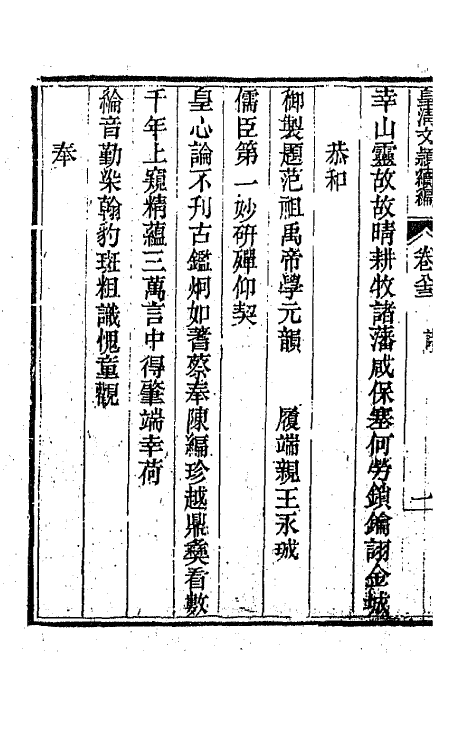 皇清文穎續編
卷
詩
幸山靈故故晴耕牧諸藩咸保塞何勞鎖鑰詡金城
恭和
御製題范祖禹帝學元韻　履端親王永珹
儒臣第一妙研殫仰契
皇心論不刊古鑑炯如蓍蔡奉陳編珍越鼎彝看數
千年上窺精蘊三萬言中得肇端幸荷
綸音勤染翰豹斑粗識愧童觀
奉